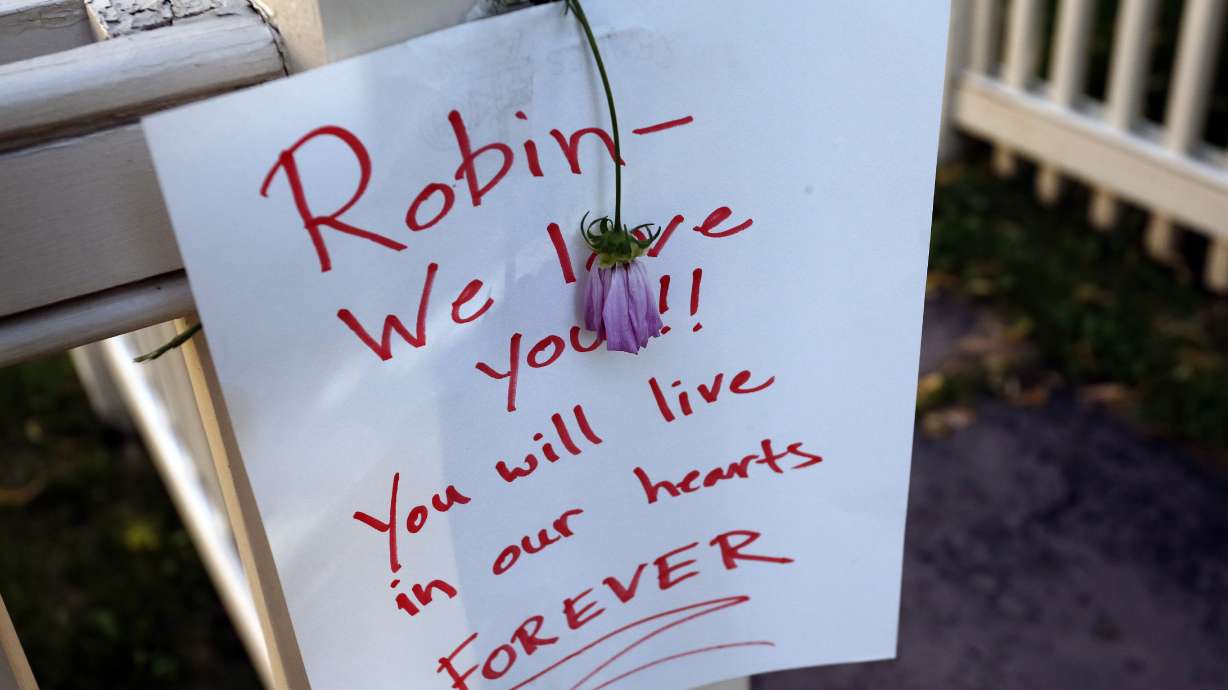 Robin-
We love
you!!!
You will live
in our hearts
FOREVER